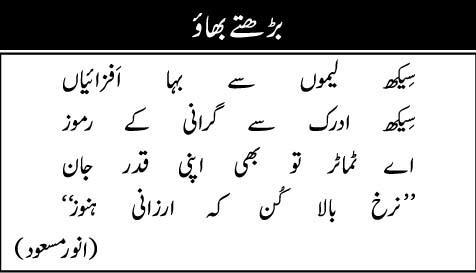 بڑھتے بھاؤ
سِیکھ لیموں سے بہا اَفزائیاں
سِیکھ ادرک سے گرانی کے رموز
اے ٹماٹر تو بھی اپنی قدر جان
’’نرخ بالا کُن کہ ارزانی ہنوز‘‘
(انور مسعود)